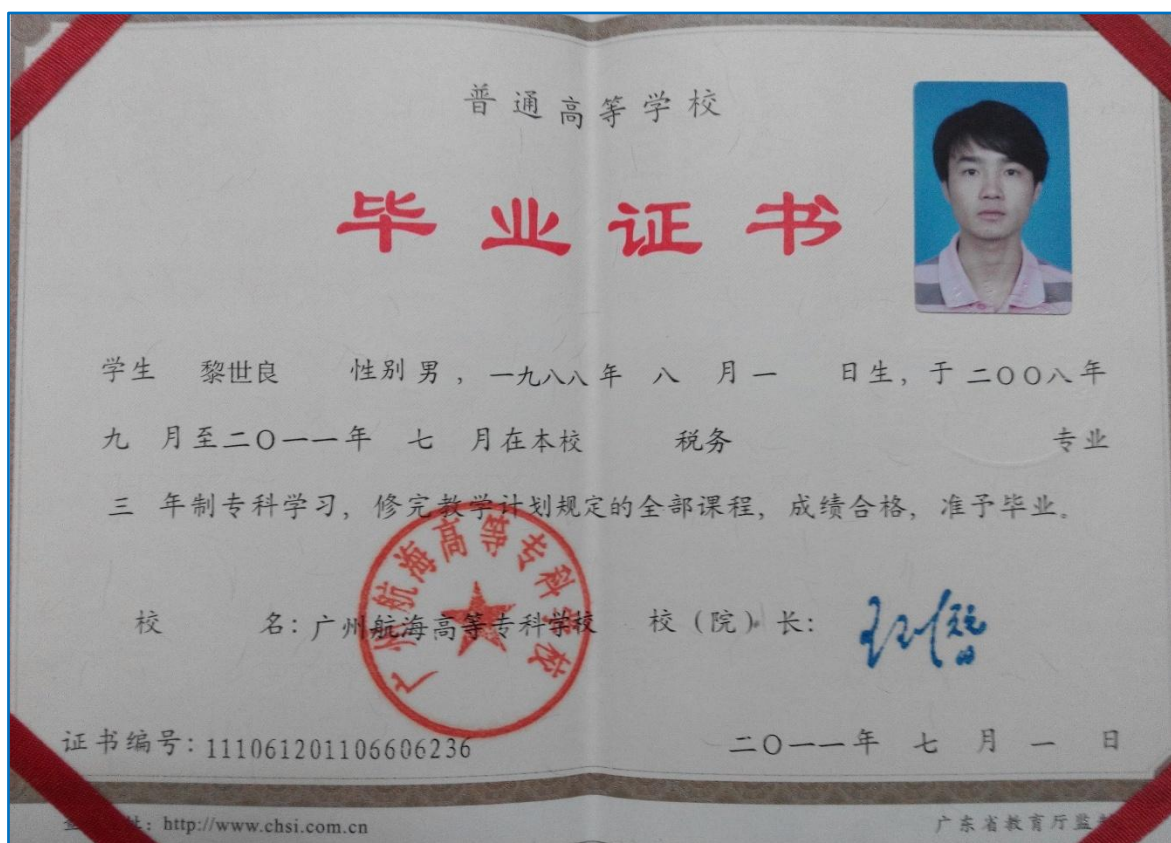 普通高等学校
毕业证书
学生 黎世良 性别 男，一九八八年 八 月 一 日生，于 二〇〇八年
九 月至二〇一一年 七 月在本校 税务 专业
三 年制专科学习，修完教学计划规定的全部课程，成绩合格，准予毕业。
校 名：广州航海高等专科学校 校（院）长：
广州航海高等专科学校
证书编号：111061201106606236 二〇一一年 七 月 一 日
http://www.chsi.com.cn 广东省教育厅监